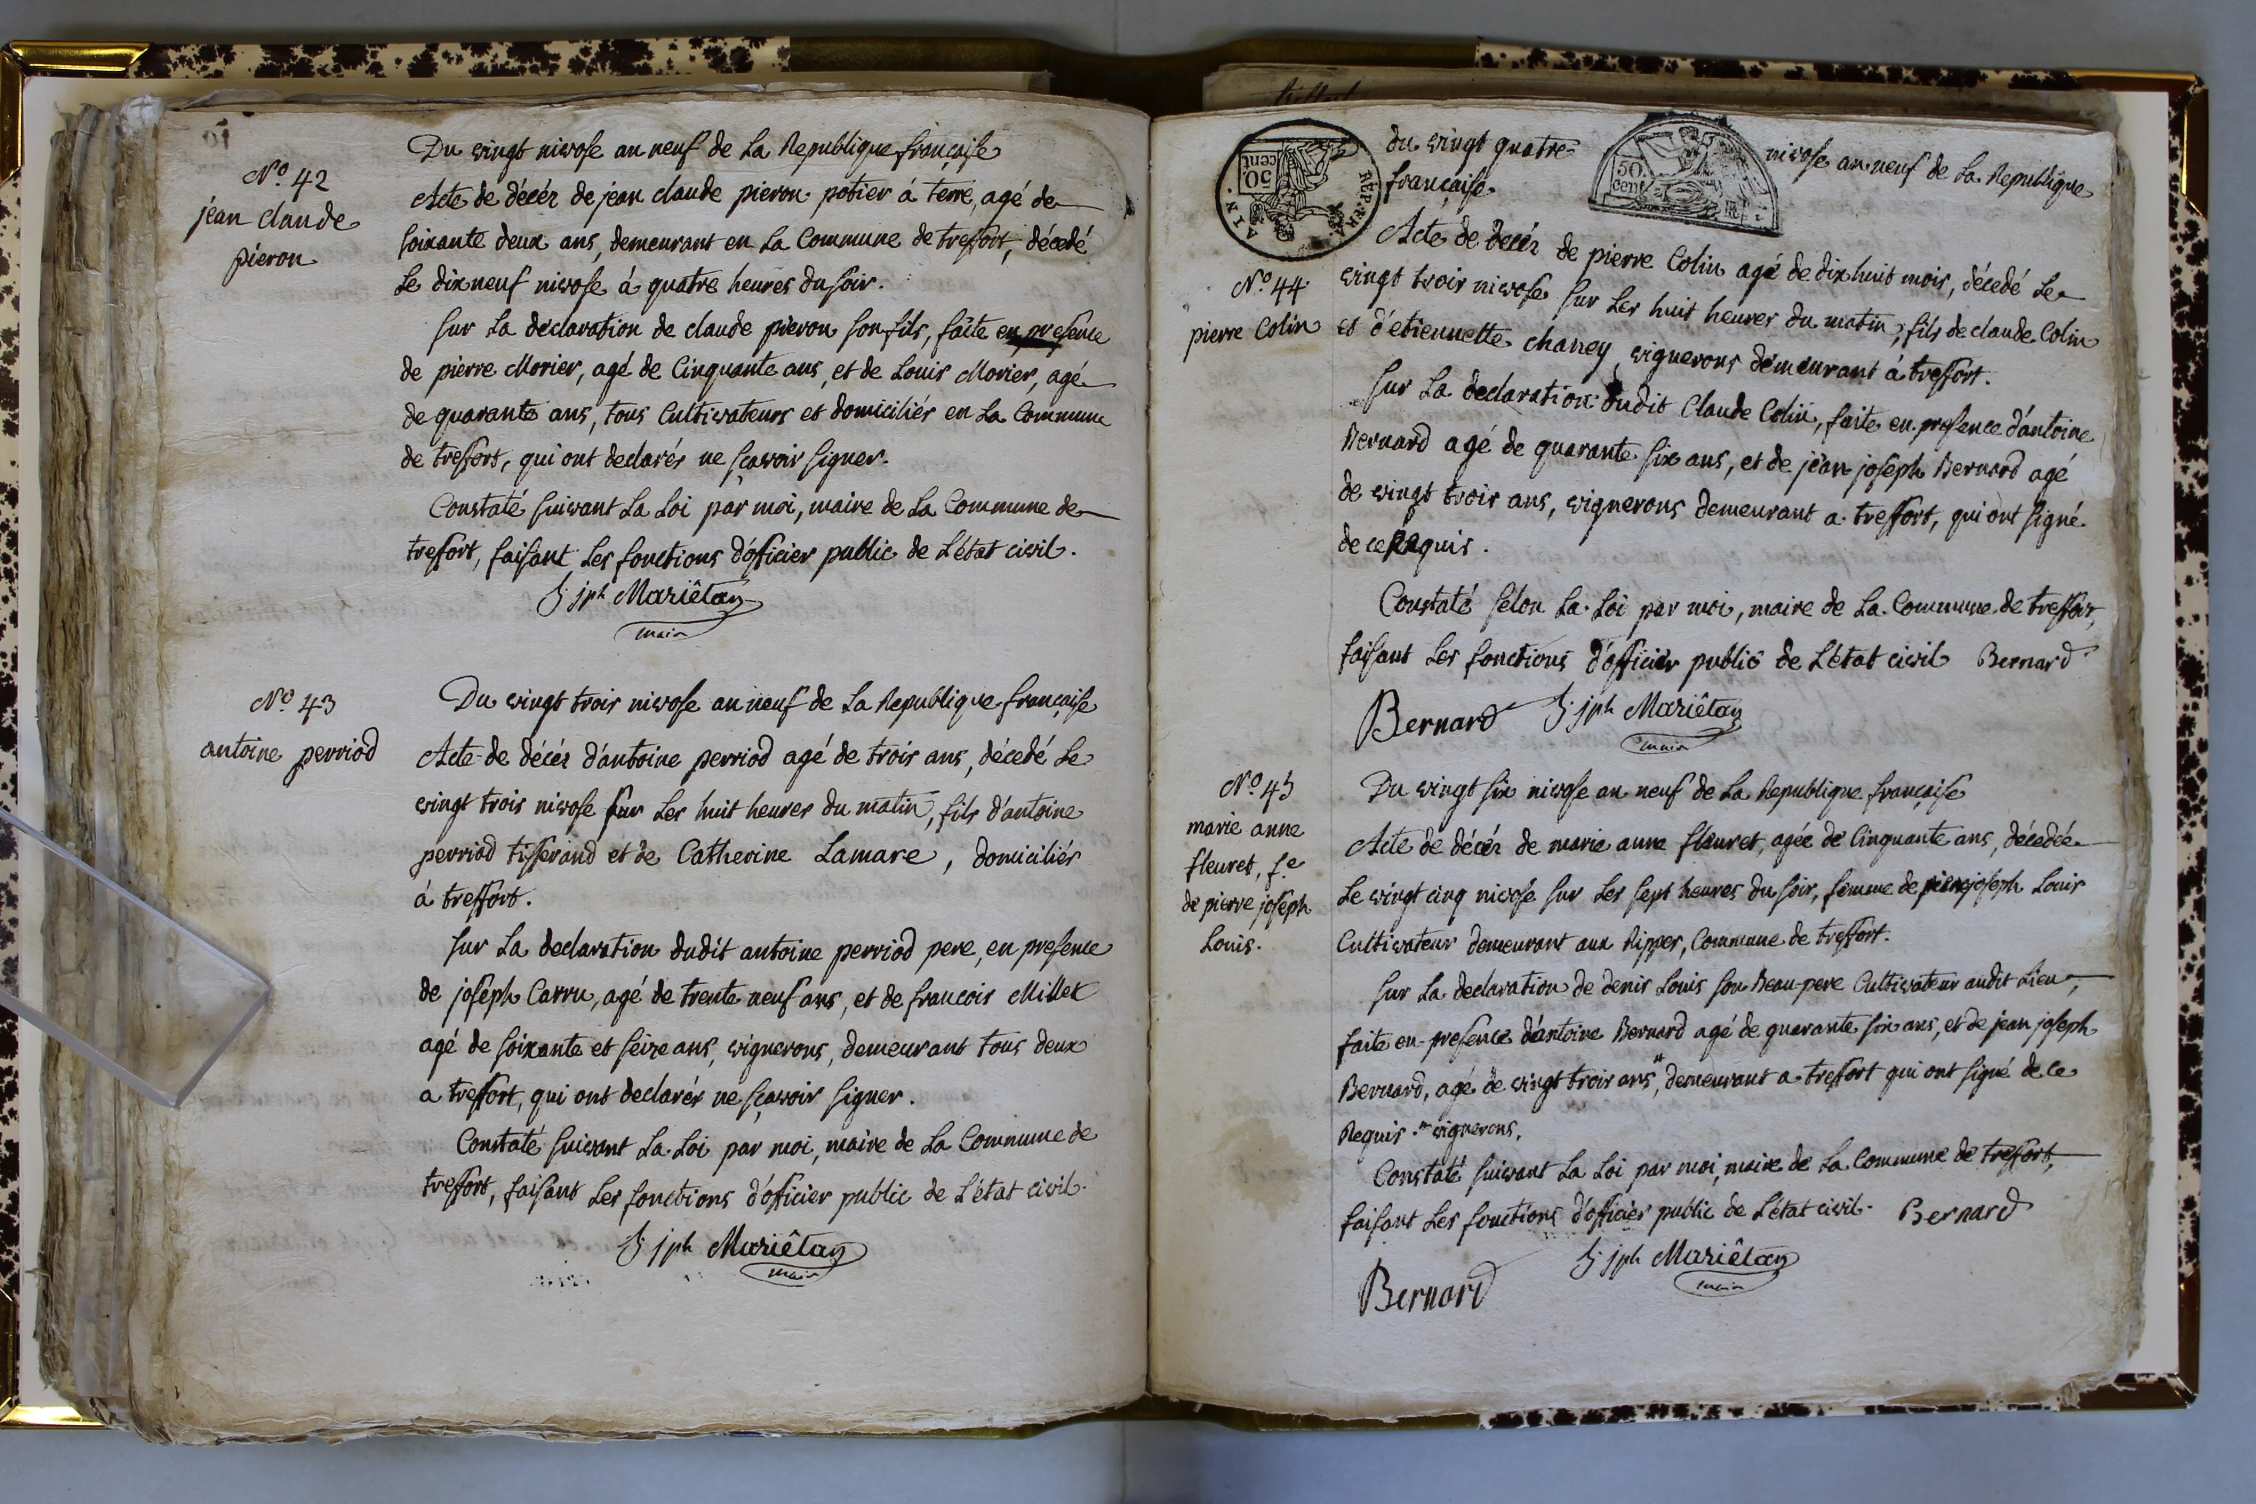 N.o 42
jean claude
pieron
Du vingt nivose an neuf de La Republique française
Acte de décès de jean claude pieron potier à terre, agé de
soixante deux ans, demeurant en La Commune de treffort, décedé
Le dix neuf nivose à quatre heures du soir.
sur La declaration de claude pieron son fils, faite en presence
de pierre Morier, agé de Cinquante ans, et de Louis Morier, agé
de quarante ans, tous Cultivateurs et domiciliés en La Commune
de treffort, qui ont declarés ne sçavoir signer.
Constaté suivant La Loi par moi, maire de La Commune de
treffort, faisant Les fonctions d'officier public de L'état civil.
jph Mariêtan
maire
N.o 43
antoine perriod
Du vingt trois nivose an neuf de La Republique française
Acte de décès d'antoine perriod agé de trois ans, décedé Le
vingt trois nivose sur Les huit heures du matin, fils d'antoine
perriod tisserand et de Catherine Lamare, domiciliés
à treffort.
sur La declaration dudit antoine perriod pere, en presence
de joseph Carru, agé de trente neuf ans, et de francois Millet
agé de soixante et seize ans, vignerons, demeurant tous deux
a treffort, qui ont declarés ne sçavoir signer.
Constaté suivant La Loi par moi, maire de La Commune de
treffort, faisant Les fonctions d'officier public de L'état civil.
jph Mariêtan
maire
AIN. REP. FRA.
50 cent
50. cent
du vingt quatre nivose an neuf de La Republique
française.
N.o 44
pierre Colin
Acte de décès de pierre Colin agé de dix huit mois, décedé Le
vingt trois nivose sur Les huit heures du matin, fils de claude Colin
et d'etiennette chaney, vignerons demeurant à treffort.
sur La declaration dudit Claude Colin, faite en presence d'antoine
Bernard agé de quarante six ans, et de jean joseph Bernard agé
de vingt trois ans, vignerons demeurant a treffort, qui ont signé
de ce Requis.
Constaté selon La Loi par moi, maire de La Commune de treffort,
faisant Les fonctions d'officier public de L'état civil Bernard
Bernard jph Mariêtan
maire
N.o 45
marie anne
fleuret, f.e
de pierre joseph
Louis.
Du vingt six nivose an neuf de La Republique française
Acte de décès de marie anne fleuret, agée de Cinquante ans, décedée
Le vingt cinq nivose sur Les sept heures du soir, femme de pierre joseph Louis
Cultivateur demeurant aux Rippes, Commune de treffort.
sur La declaration de denis Louis son Beau-pere Cultivateur audit Lieu,
faite en presence d'antoine Bernard agé de quarante six ans, et de jean joseph
Bernard, agé de vingt trois ans, demeurant a treffort qui ont signé de ce
Requis. vignerons.
Constaté suivant La Loi par moi, maire de La Commune de treffort,
faisant Les fonctions d'officier public de L'état civil. Bernard
jph Mariêtan
maire
Bernard